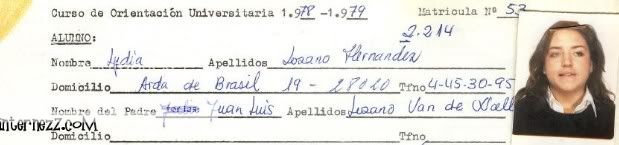 Curso de Orientación Universitaria 1.978 -1.979 Matricula Nº 53
ALUMNO: 2.214
Nombre Lydia Apellidos Lozano Hernandez
Domicilio Avda de Brasil 19 - 28020 Tfno 4-45-30-95
Nombre del Padre Juan Luis Apellidos Lozano Van de Wall
internezz.coM
Domicilio Tfno